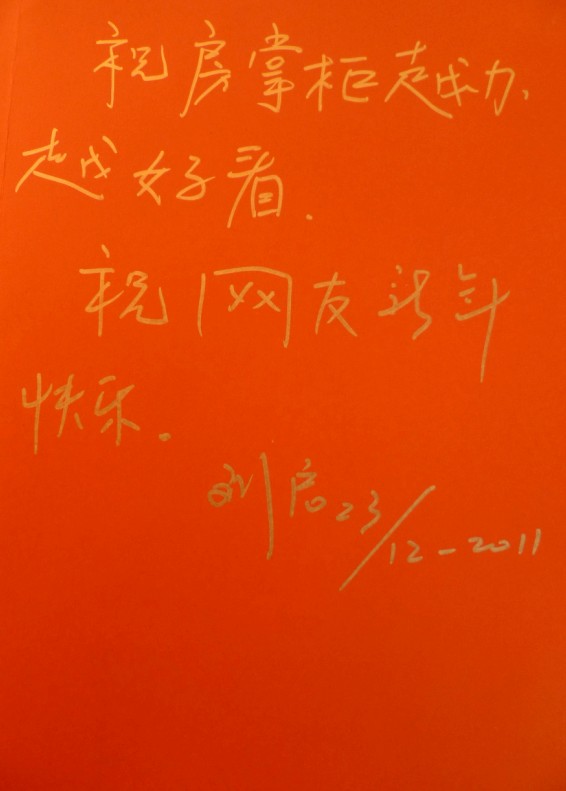 祝房掌柜越办
越好看.
祝网友新年
快乐.
刘启 23/12-2011